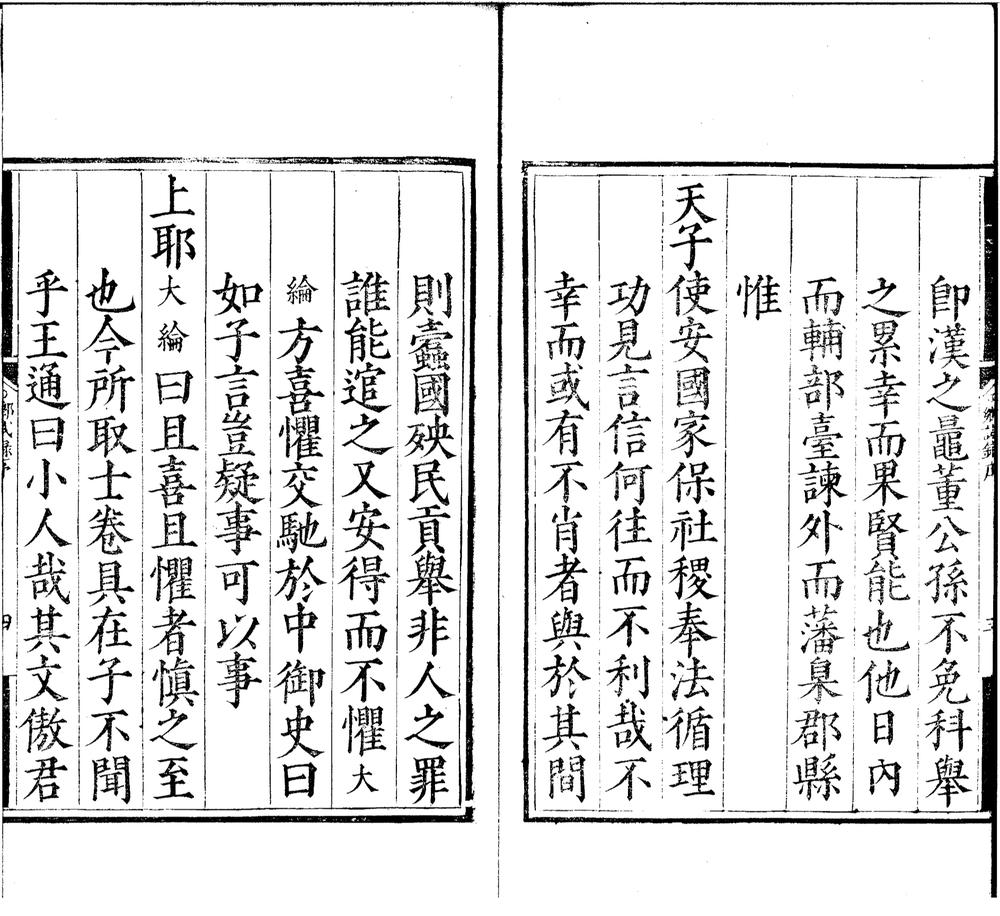 卽漢之鼂董公孫不免科舉
之累幸而果賢能也他日內
而輔部臺諫外而藩臬郡縣
惟
天子使安國家保社稷奉法循理
功見言信何往而不利哉不
幸而或有不肖者與於其間
則蠹國殃民貢舉非人之罪
誰能逭之又安得而不懼大
綸方喜懼交馳於中御史曰
如子言豈疑事可以事
上耶大綸曰且喜且懼者慎之至
也今所取士卷具在子不聞
乎王通曰小人哉其文傲君